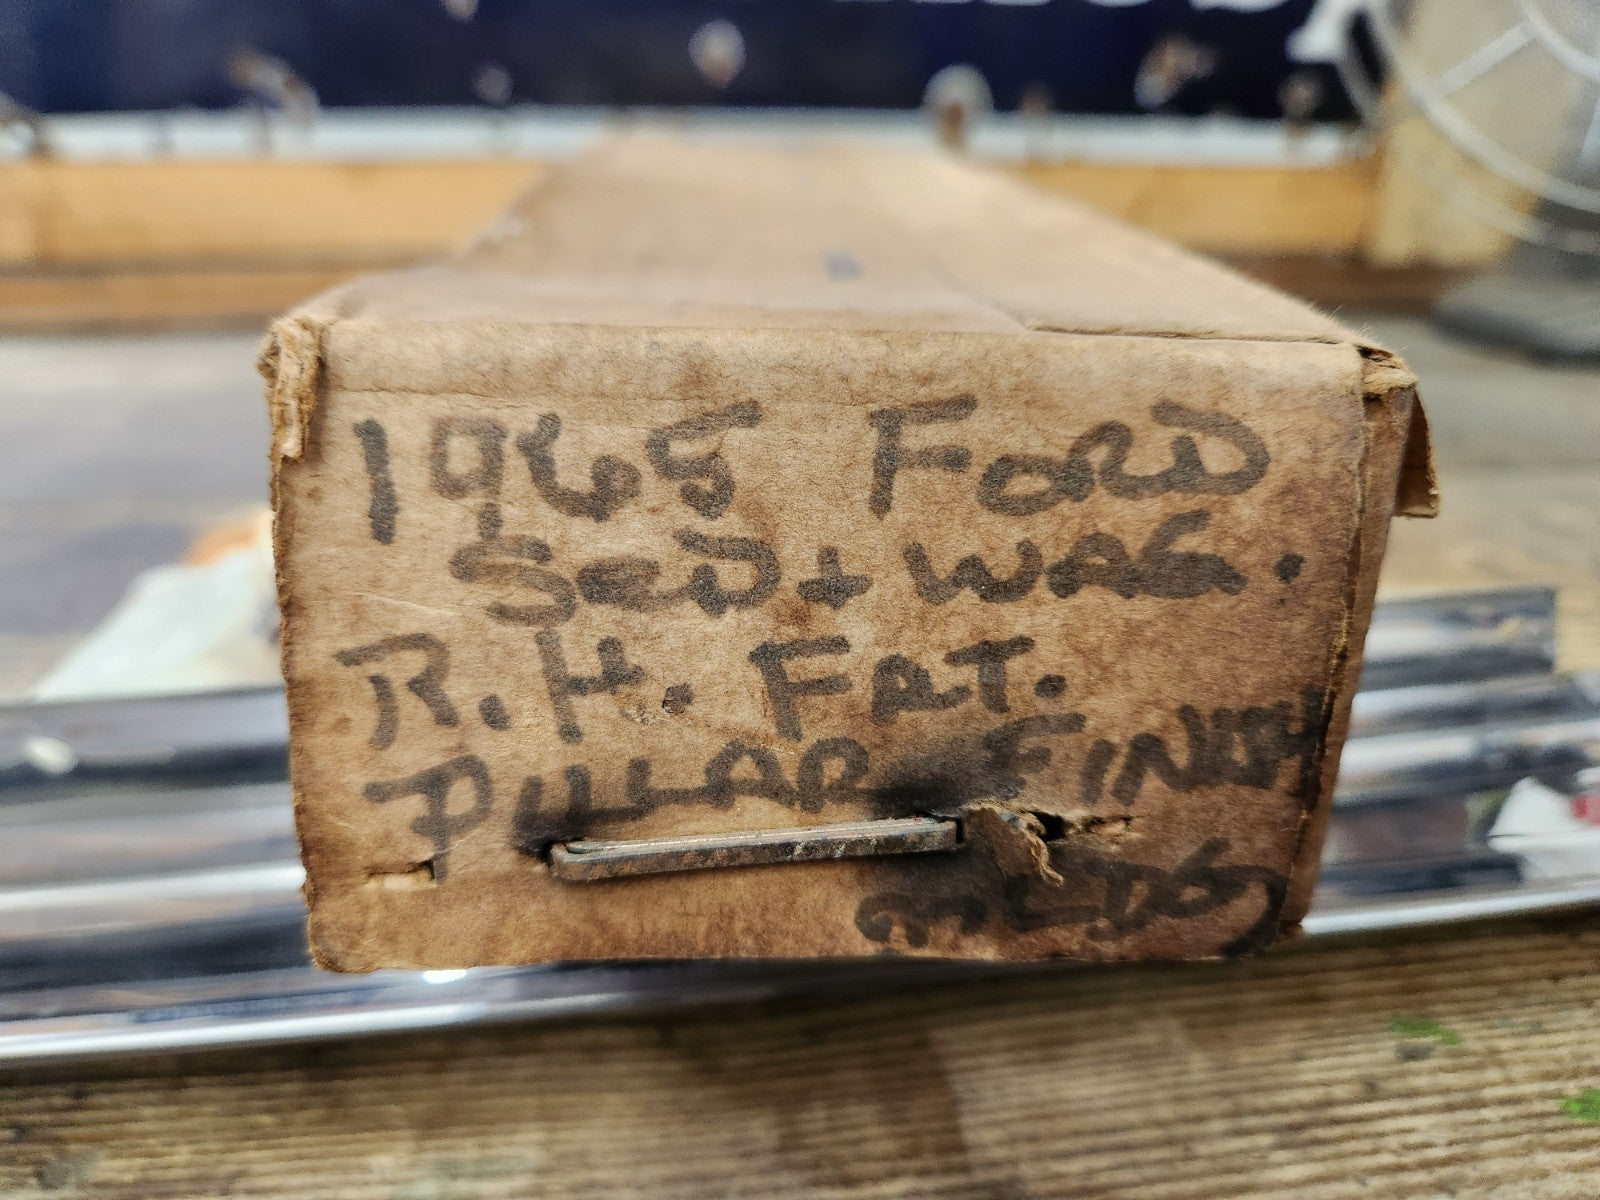 1965 FORD
SED + WAG.
R.H. FRT.
PILLAR FINISH